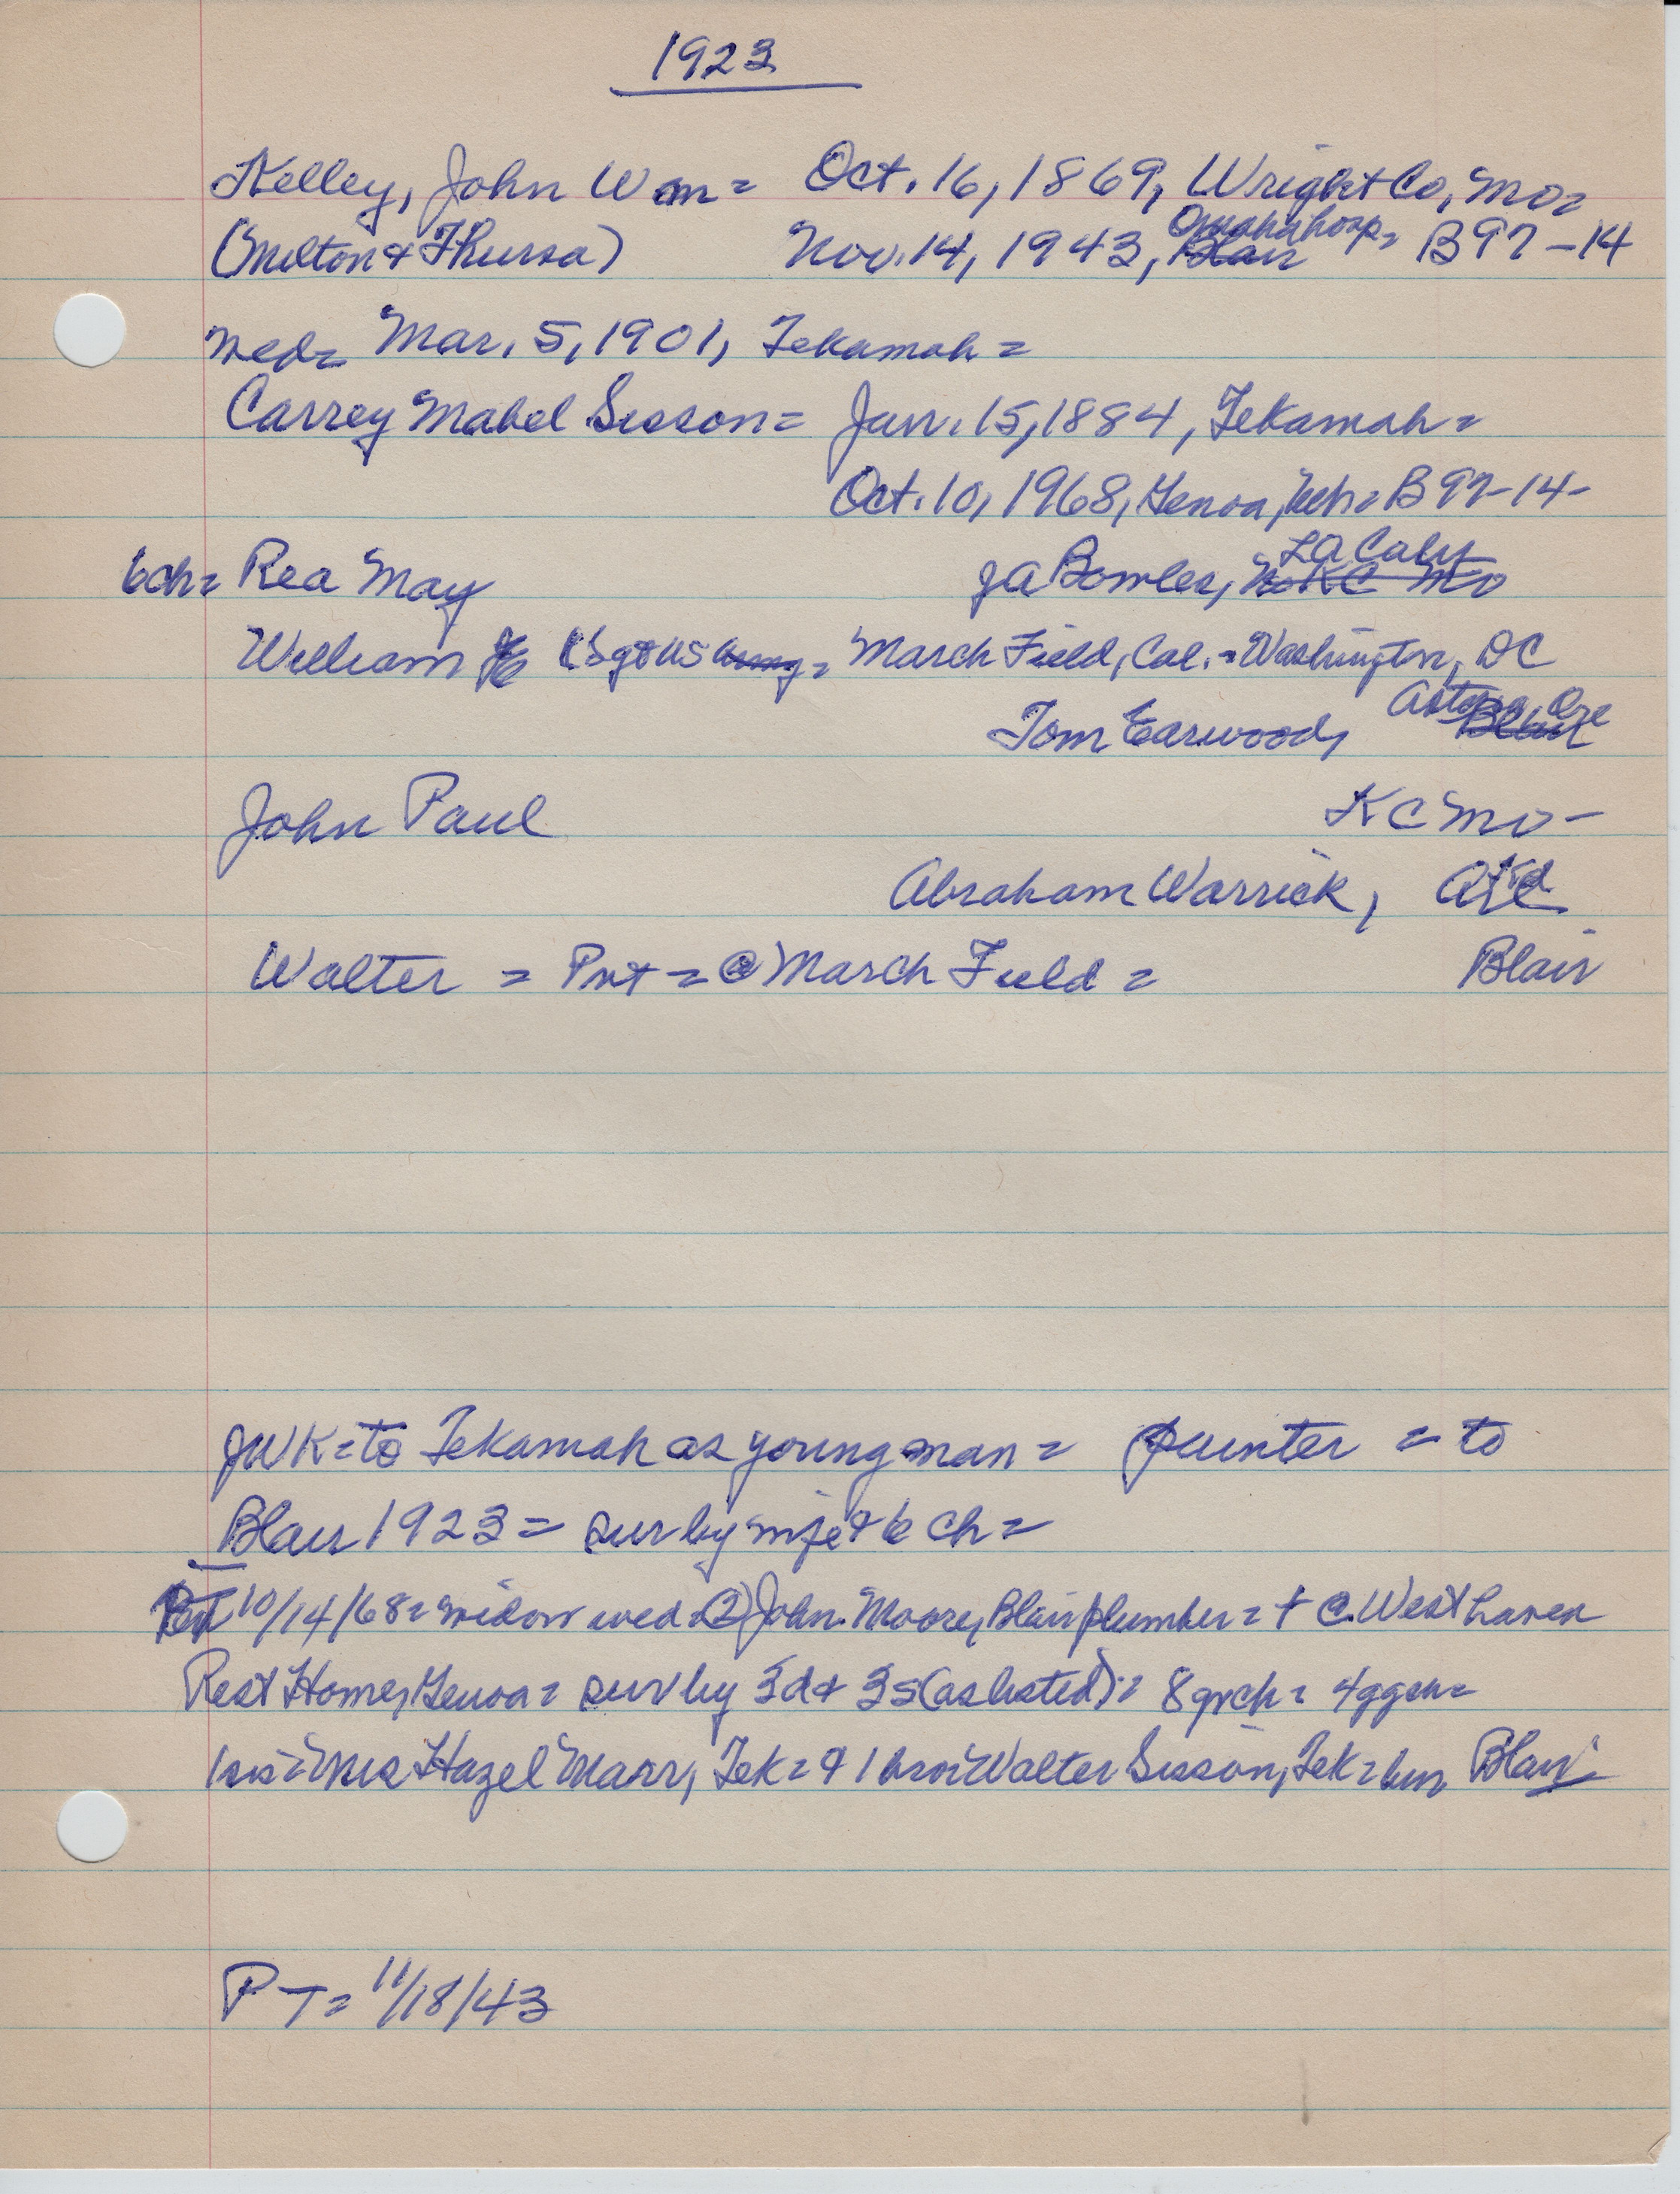 1923
Kelley, John Wm = Oct. 16, 1869, Wright Co, Mo =
Omaha hosp =
(Milton & Thursa) Nov. 14, 1943, Blair B97-14
wed = Mar. 5, 1901, Tekamah =
Carrey Mabel Sisson = Jan. 15, 1884, Tekamah =
Oct. 10, 1968, Genoa, Neb = B97-14-
LA Calif
6ch = Rea May JA Bowles, No KC Mo
William Sgt US Army = March Field, Cal. = Washington, DC
Astoria, Ore
Tom Earwood, Blair
John Paul KC Mo -
Abraham Warrick,
Walter = Pvt = @ March Field = Blair
JWK = to Tekamah as young man = painter = to
Blair 1923 = sur by wife & 6 ch =
10/14/68 = widow wed (2) John Moore, Blair plumber = + @ West haven
Rest Home, Genoa = surv by 3d & 3s (as listed) = 8 grch = 4 ggch =
1 sis = Mrs Hazel Marr, Tek = & 1 bro = Walter Sisson, Tek = bur Blair
PT = 11/18/43